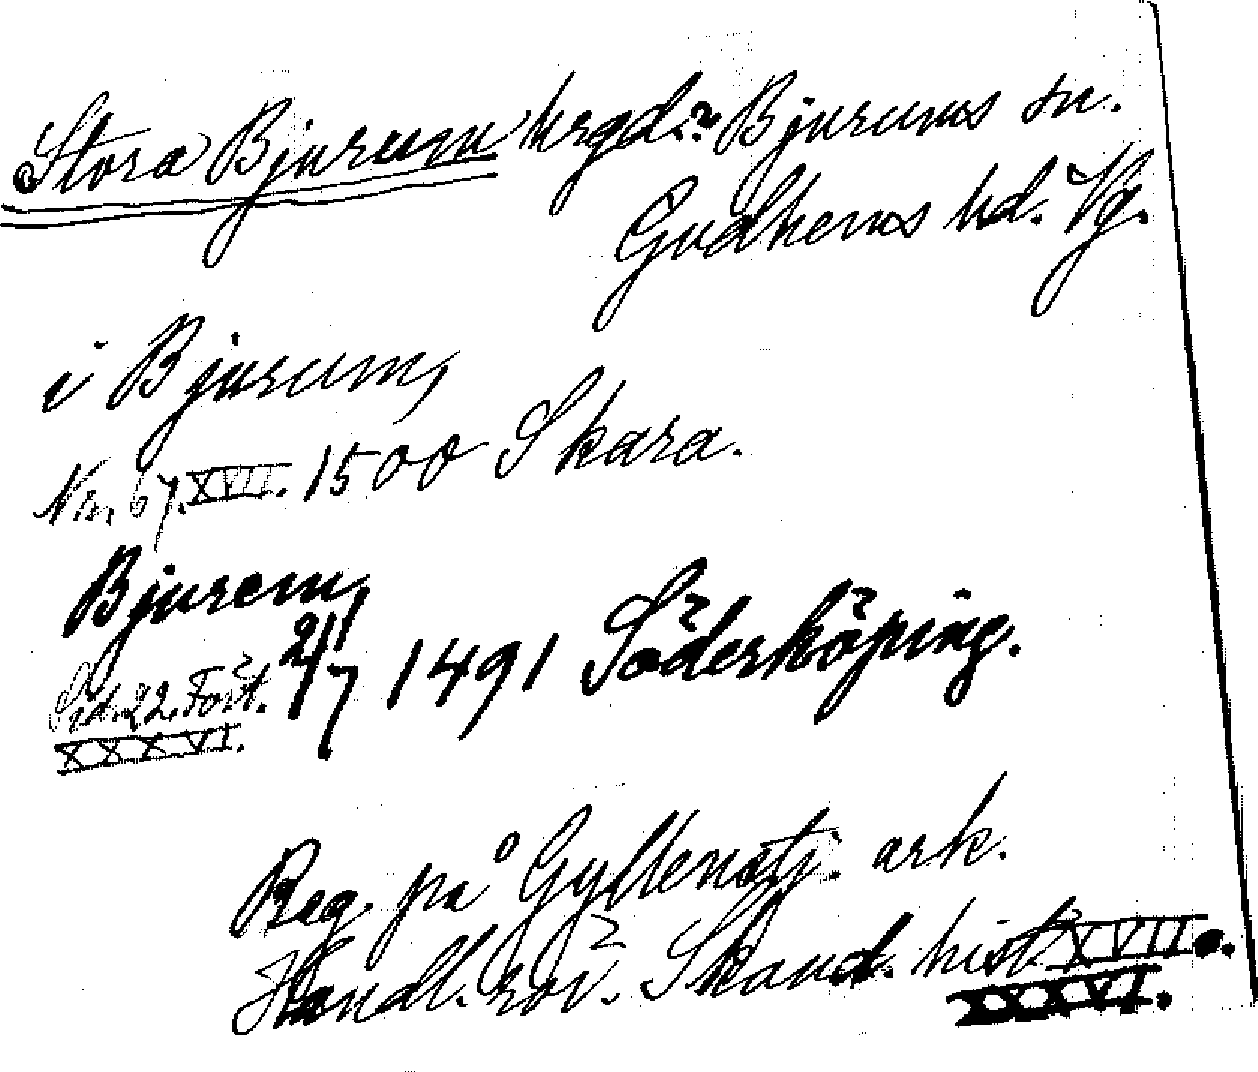 Stora Bjurum hrgd. Bjurums sn.
Gudhems hd. Vg.
i Bjurum,
Nr. 67. XVII. 1500 Skara.
Bjurem,
21/7 1491 Söderköping.
Sid. 22. Fört.
XXXVI.
Reg. på Gyllenstj. ark.
Handl. rör. Skand. hist. XVII.
XXXVI.